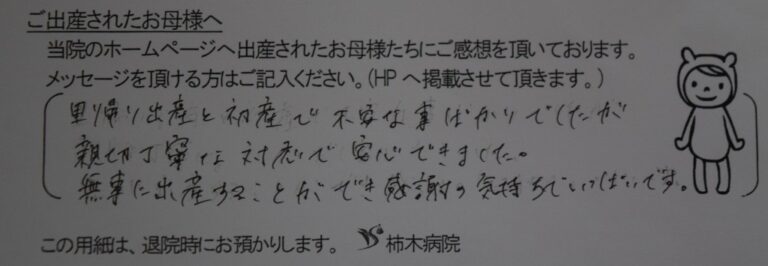 ご出産されたお母様へ
当院のホームページへ出産されたお母様たちにご感想を頂いております。
メッセージを頂ける方はご記入ください。(HPへ掲載させて頂きます。)
里帰り出産と初産で不安な事ばかりでしたが
親切丁寧な対応で安心できました。
無事に出産することができ感謝の気持ちでいっぱいです。
この用紙は、退院時にお預かりします。 柿木病院